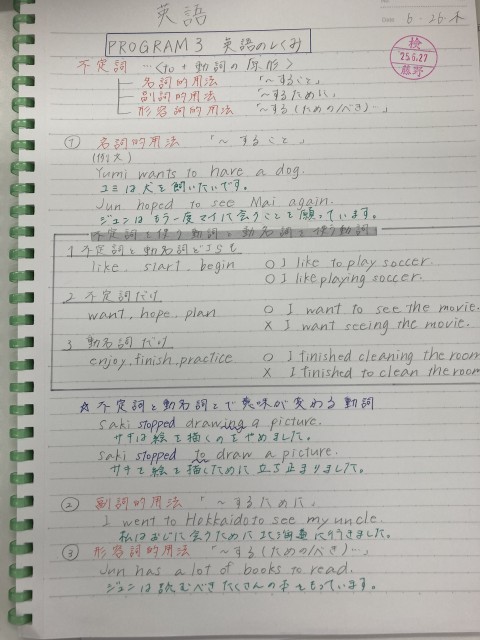 英語
DATE 6・26・木
検
25.6.27
藤野
PROGRAM 3 英語のしくみ
不定詞 …〈to + 動詞の原形〉
名詞的用法 「~すること」
副詞的用法 「~するために」
形容詞的用法 「~する(ための/べき)…」
① 名詞的用法 「~すること」
(例文)
Yumi wants to have a dog.
ユミは犬を飼いたいです。
Jun hoped to see Mai again.
ジュンはもう一度マイに会うことを願っています。
不定詞を使う動詞と動名詞を使う動詞
1 不定詞と動名詞どっちも
like, start, begin ○ I like to play soccer.
○ I like playing soccer.
2 不定詞だけ
want, hope, plan ○ I want to see the movie.
× I want seeing the movie.
3 動名詞だけ
enjoy, finish, practice ○ I finished cleaning the room
× I finished to clean the room
☆不定詞と動名詞とで意味が変わる動詞
Saki stopped drawing a picture.
サキは絵を描くのをやめました。
Saki stopped to draw a picture.
サキは絵を描くために立ち止まりました。
② 副詞的用法 「~するために」
I went to Hokkaido to see my uncle.
私はおじに会うために北海道に行きました。
③ 形容詞的用法 「~する(ための/べき)…」
Jun has a lot of books to read.
ジュンは読むべきたくさんの本をもっています。